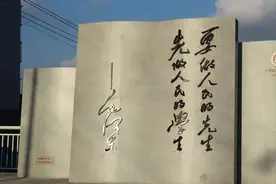 要做人民的先生
先做人民的學生
——毛泽东